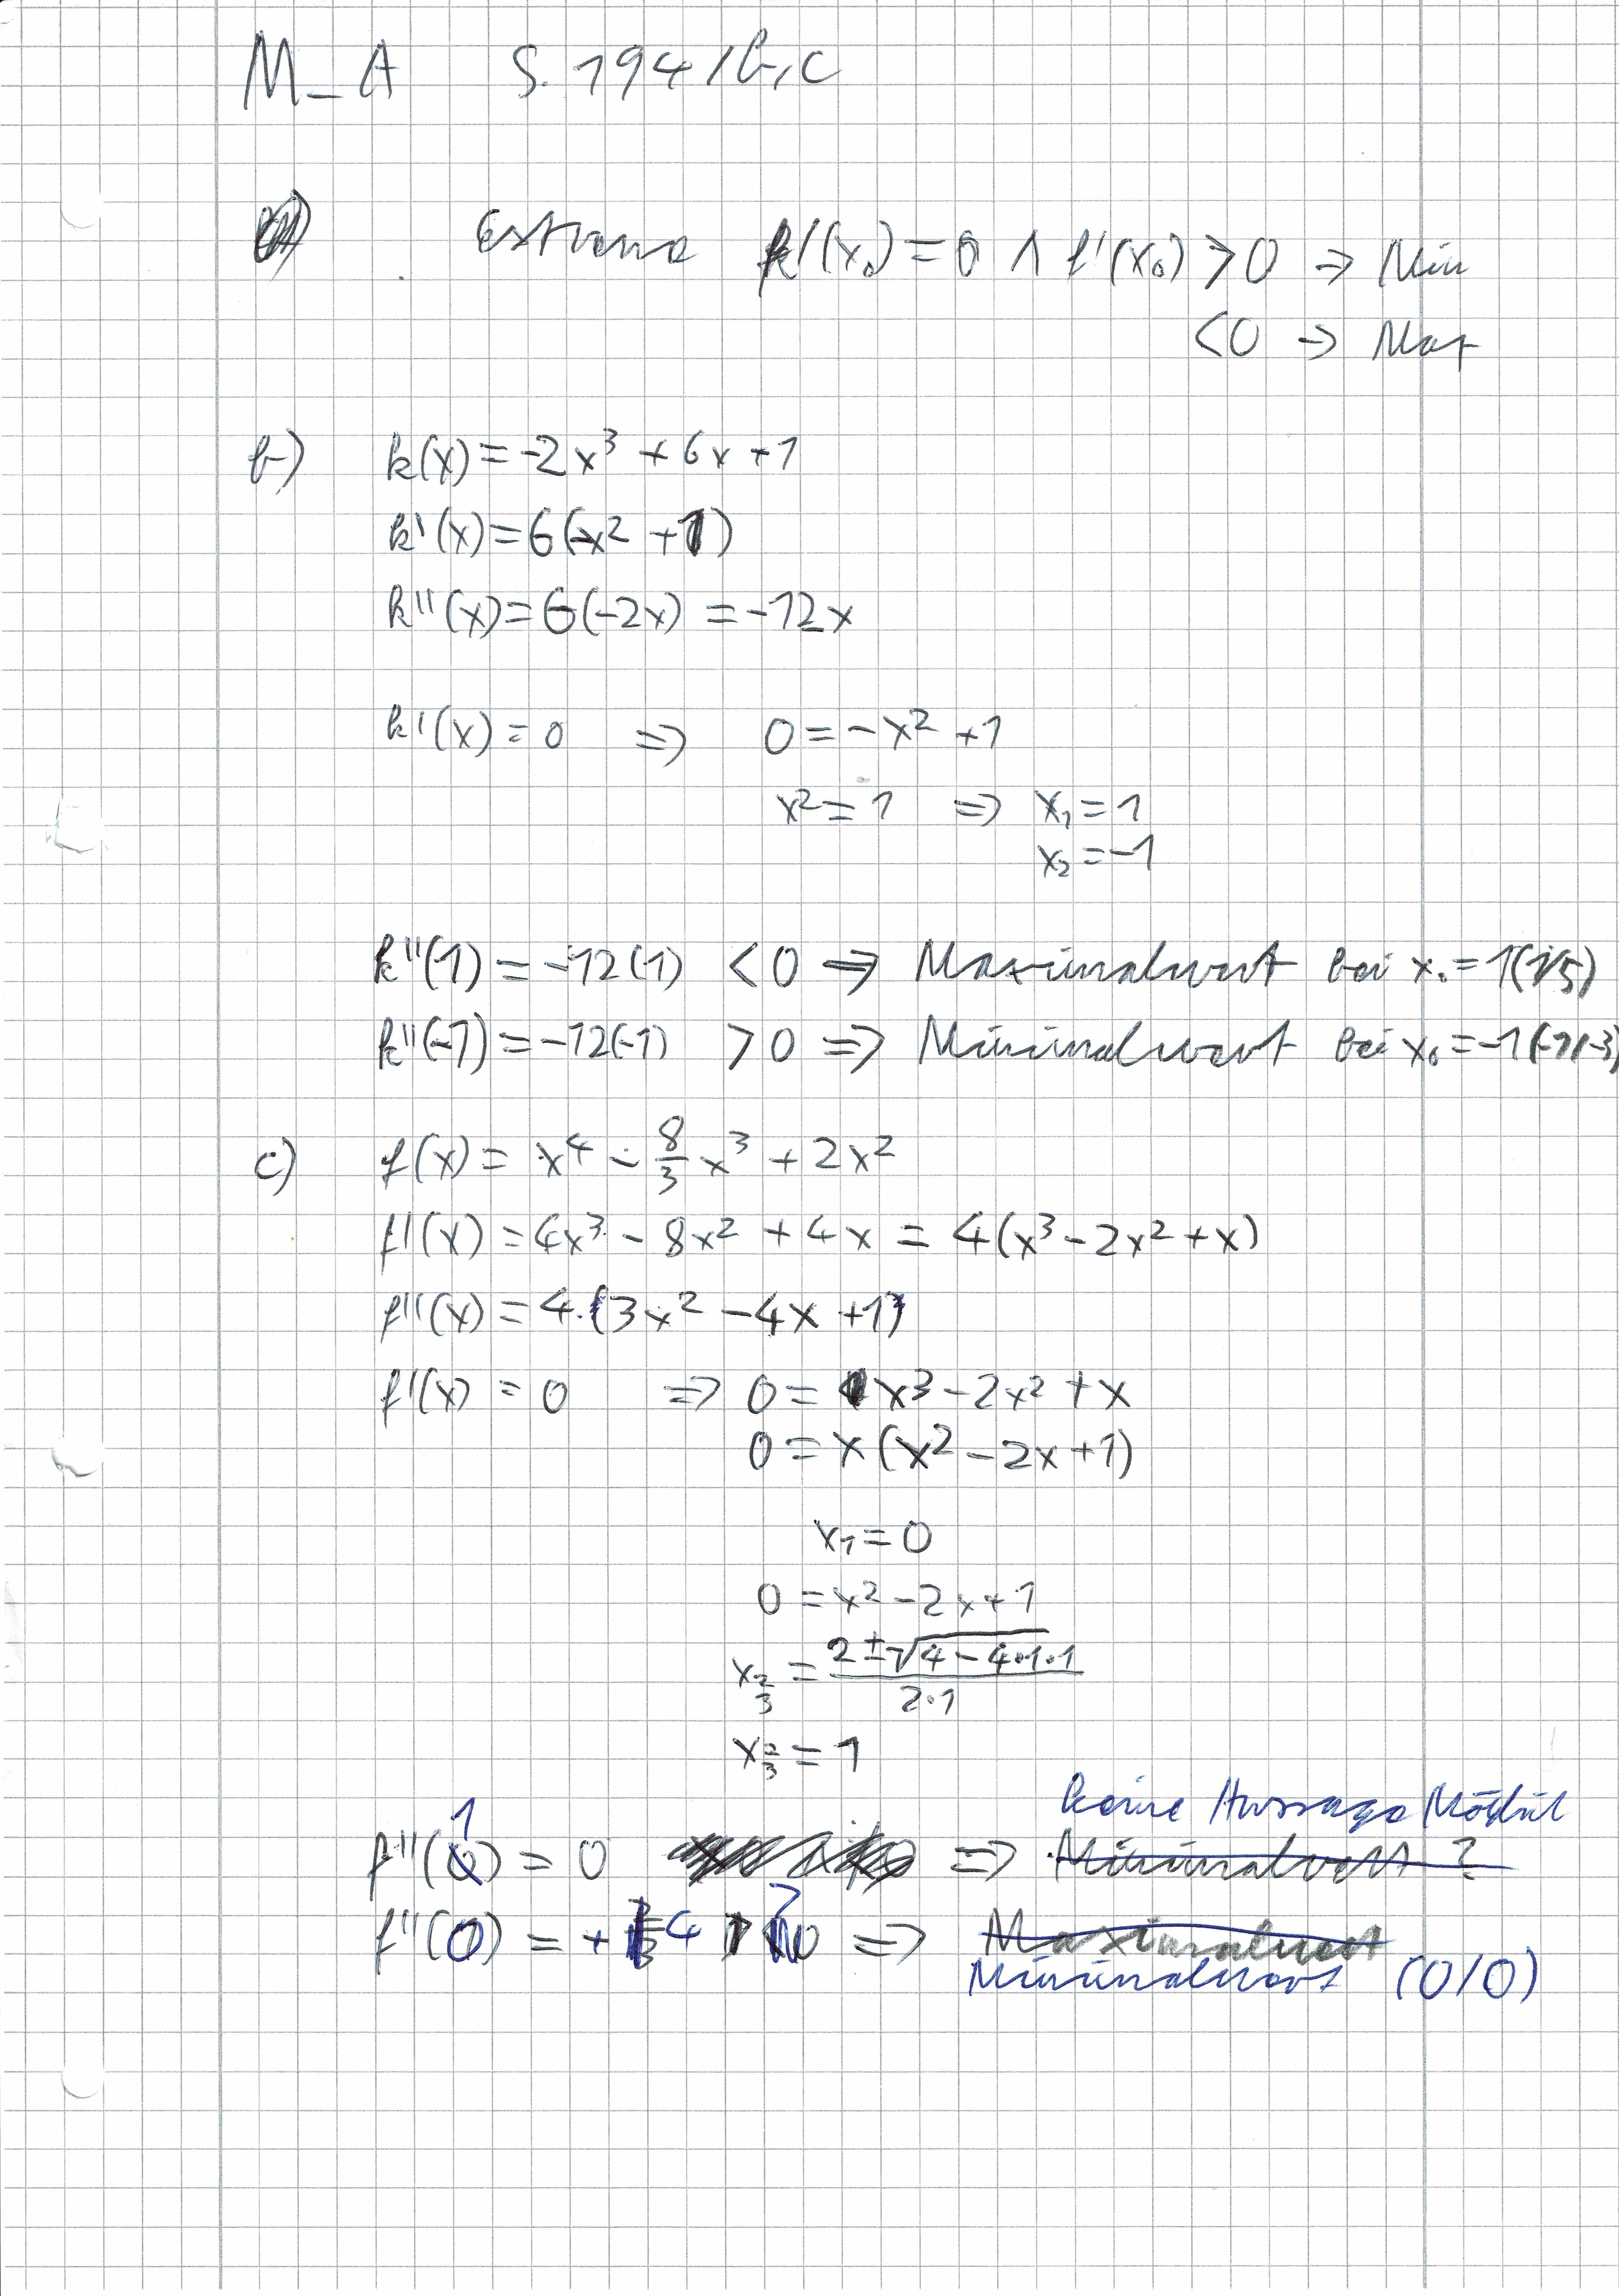 M_A S. 194 / b, c
Extrema f'(x₀) = 0 ∧ f'(x₀) > 0 ⇒ Min
< 0 → Max
b) k(x) = -2x³ + 6x + 1
k'(x) = 6(-x² + 1)
k''(x) = 6(-2x) = -12x
k'(x) = 0 ⇒ 0 = -x² + 1
x² = 1 ⇒ x₁ = 1
x₂ = -1
k''(1) = -12(1) < 0 ⇒ Maximalwert bei x₀ = 1 (1/5)
k''(-1) = -12(-1) > 0 ⇒ Minimalwert bei x₀ = -1 (-1/-3)
c) f(x) = x⁴ - 8/3 x³ + 2x²
f'(x) = 4x³ - 8x² + 4x = 4(x³ - 2x² + x)
f''(x) = 4·(3x² - 4x + 1)
f'(x) = 0 ⇒ 0 = x³ - 2x² + x
0 = x(x² - 2x + 1)
x₁ = 0
0 = x² - 2x + 1
x₂/₃ = (2 ± √(4 - 4·1·1)) / (2·1)
x₂/₃ = 1
keine Aussage Möglich
f''(1) = 0 ⇒ Minimalwert ?
f''(0) = + 4 > 0 ⇒ Maximalwert
Minimalwert (0/0)